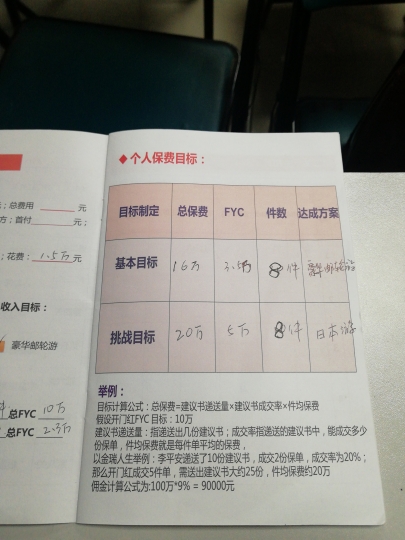 元；总费用 元
方；首付 元；
；花费：1.5万元
收入目标：
豪华邮轮游
总FYC 10万
总FYC 2.3万
◆个人保费目标：
目标制定 总保费 FYC 件数 达成方案
基本目标 16万 3.5万 8件 豪华邮轮游
挑战目标 20万 5万 8件 日本游
举例：
目标计算公式：总保费=建议书递送量×建议书成交率×件均保费
假设开门红FYC 目标：10万
建议书递送量：指递送出几份建议书；成交率指递送的建议书中，能成交多少
份保单，件均保费就是每件单平均的保费，
以金瑞人生举例：李平安递送了10份建议书，成交2份保单，成交率为20%；
那么开门红成交5件单，需送出建议书大约25份，件均保费约20万
佣金计算公式为:100万*9% = 90000元